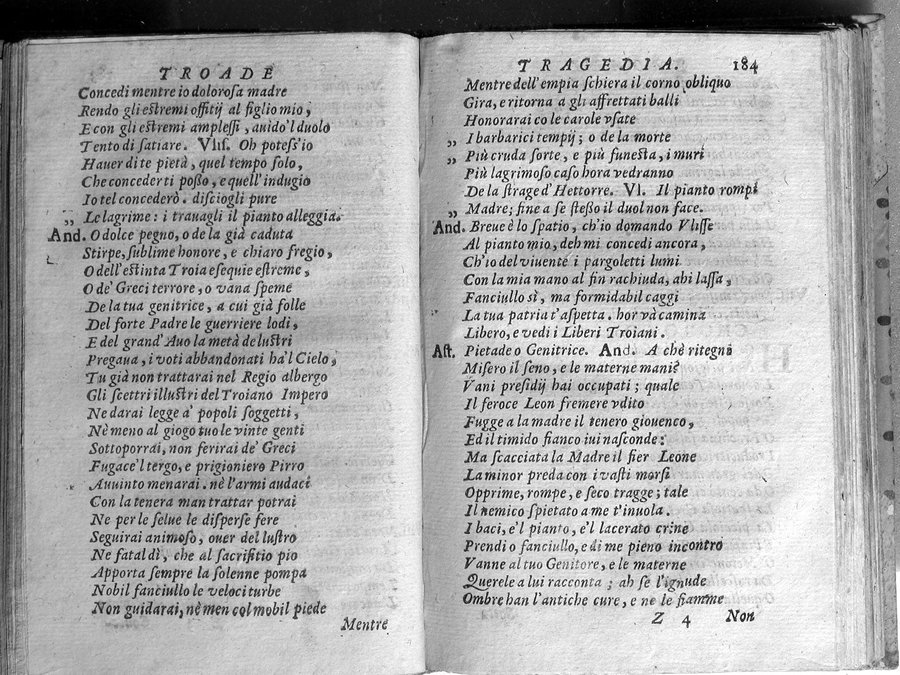 TROADE
Concedi mentre io dolorosa madre
Rendo gli estremi offitij al figlio mio,
E con gli estremi amplessi, auido'l duolo
Tento di satiare. Vlis. Oh potess'io
Hauer di te pietà, quel tempo solo,
Che concederti posso, e quell'indugio
Io tel concederò. disciogli pure
„ Le lagrime: i trauagli il pianto alleggia.
And. O dolce pegno, o de la già caduta
Stirpe, sublime honore, e chiaro fregio,
O dell'estinta Troia esequie estreme,
O de' Greci terrore, o vana speme
De la tua genitrice, a cui già folle
Del forte Padre le guerriere lodi,
E del grand'Auo la metà de lustri
Pregaua, i voti abbandonati ha'l Cielo,
Tu già non trattarai nel Regio albergo
Gli scettri illustri del Troiano Impero
Ne darai legge a' popoli soggetti,
Nè meno al giogo tuo le vinte genti
Sottoporrai, non ferirai de' Greci
Fugace'l tergo, e prigioniero Pirro
Auuinto menarai. nè l'armi audaci
Con la tenera man trattar potrai
Ne per le selue le disperse fere
Seguirai animoso, ouer del lustro
Ne fatal dì, che al sacrifitio pio
Apporta sempre la solenne pompa
Nobil fanciullo le veloci turbe
Non guidarai, nè men col mobil piede
Mentre
TRAGEDIA. 184
Mentre dell'empia schiera il corno obliquo
Gira, e ritorna a gli affrettati balli
Honorarai co le carole vsate
„ I barbarici tempij; o de la morte
„ Più cruda sorte, e più funesta, i muri
Più lagrimoso caso hora vedranno
De la strage d'Hettorre. Vl. Il pianto rompi
„ Madre; fine a se stesso il duol non face.
And. Breue è lo spatio, ch'io domando Vlisse
Al pianto mio, deh mi concedi ancora,
Ch'io del viuente i pargoletti lumi
Con la mia mano al fin rachiuda, ahi lassa,
Fanciullo sì, ma formidabil caggi
La tua patria t'aspetta. hor và camina
Libero, e vedi i Liberi Troiani.
Ast. Pietade o Genitrice. And. A chè ritegni
Misero il seno, e le materne mani?
Vani presidij hai occupati; quale
Il feroce Leon fremere vdito
Fugge a la madre il tenero giouenco,
Ed il timido fianco iui nasconde:
Ma scacciata la Madre il fier Leone
La minor preda con i vasti morsi
Opprime, rompe, e seco tragge; tale
Il nemico spietato a me t'inuola.
I baci, e'l pianto, e'l lacerato crine
Prendi o fanciullo, e di me pieno incontro
Vanne al tuo Genitore, e le materne
Querele a lui racconta; ah se l'ignude
Ombre han l'antiche cure, e ne le fiamme
Z 4 Non